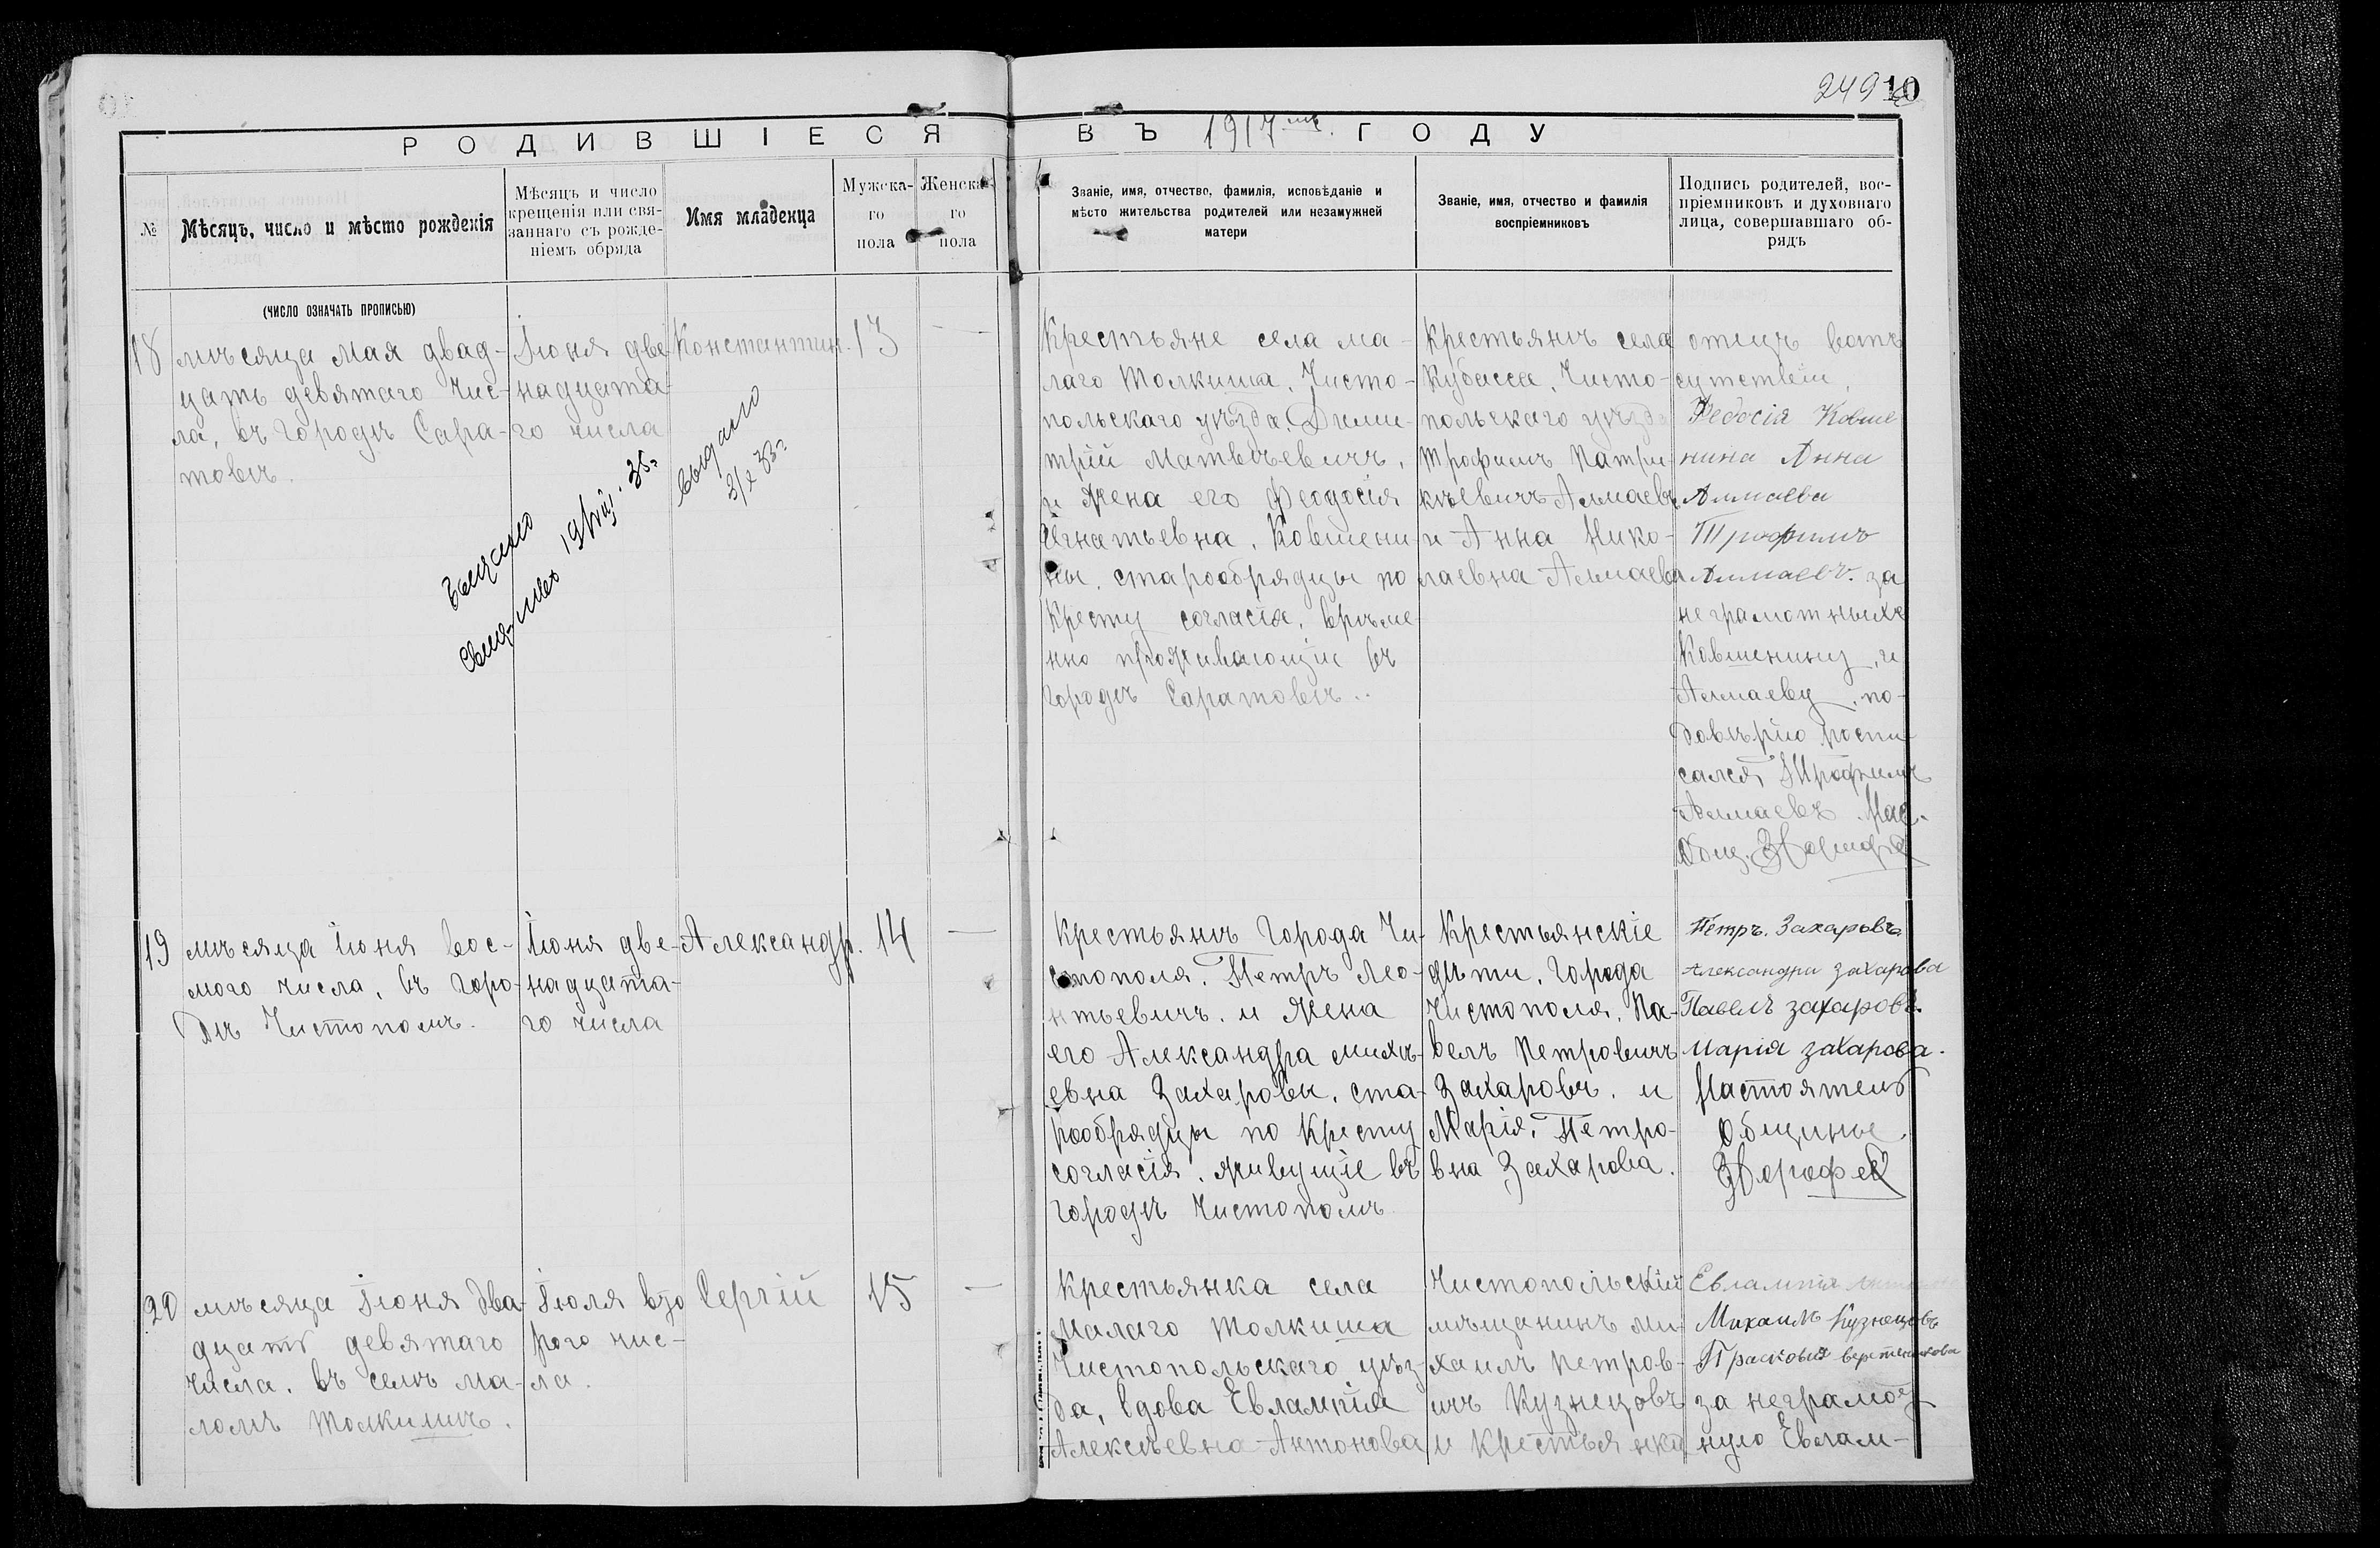 249 10
РОДИВШІЕСЯ ВЪ 1917 мъ. ГОДУ
№
Мѣсяцъ, число и мѣсто рожденія
Мѣсяцъ и число
крещенія или свя-
заннаго съ рожде-
ніемъ обряда
Имя младенца
Мужска-
го
пола
Женска-
го
пола
Званіе, имя, отчество, фамилія, исповѣданіе и
мѣсто жительства родителей или незамужней
матери
Званіе, имя, отчество и фамилія
воспріемниковъ
Подпись родителей, вос-
пріемниковъ и духовнаго
лица, совершавшаго об-
рядъ
(ЧИСЛО ОЗНАЧАТЬ ПРОПИСЬЮ)
18
мѣсяца Мая двад-
цать девятаго Чис-
ла, въ Городѣ Сара-
товѣ.
Іюня две-
надцата-
го числа
Константин.
13
—
выдано
3/X 33г
Выдано
35г
Крестьяне села Ма-
лаго Толкиша, Чисто-
польскаго уѣзда. Дими-
трій Матвѣевичъ,
и Жена его Феодосія
Игнатьевна, Ковшени-
ны, старообрядцы по
Кресту согласія, врѣме-
нно проживающіи въ
городѣ Саратовѣ..
Крестьянъ села
Кубасса, Чисто-
польскаго уѣзда
Трофимъ Патри-
кѣевичъ Алмаевъ
и Анна Нико-
лаевна Алмаева
отецъ вотъ
сутствіи,
Федосія Ковше
нина Анна
Алмаева
Трофимъ
Алмаевъ. за
неграмотныхъ
Ковшенину, и
Алмаеву, по-
довѣрію роспи
салея Трофимъ
Алмаевъ. Нас.
Общ.
19
мѣсяца Іюня вос-
мого числа, въ Горо-
дѣ Чистополѣ.
Іюня две-
надцата-
го числа
Александр.
14
—
Крестьянъ Города Чи-
стополя, Петръ Лео-
нтьевичъ, и Жена
его Александра михѣ-
евна Захаровы, ста-
рообрядцы по Кресту
согласія, живущіе въ
городѣ Чистополѣ
Крестьянскіе
дѣти, Города
Чистополя, Па-
велъ Петровичъ
Захаровъ, и
Марія, Петро-
вна Захарова.
Петръ. Захаровъ
Александра захарова
Павелъ захаровъ.
Марія захарова.
Настоятель
Общины,
20
мѣсяца Іюня два-
дцать девятаго
числа, въ селѣ Ма-
ломъ Толкишѣ.
Іюля вто
рого чис-
ла.
Сергій
15
—
Крестьянка села
Малаго Толкиша
Чистопольскаго уѣз-
да, вдова Евлампія
Алексѣевна Антонова
Чистопольскій
мѣщанинъ Ми-
хаилъ Петров-
ичъ Кузнецовъ
и Крестьянка
Евлампія
Михаилъ Кузнецовъ
Прасковья
за неграмот
ную Евлам-